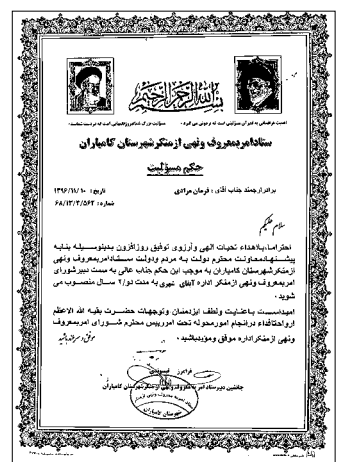 بسم الله الرحمن الرحیم
ستاد امر بمعروف ونهی از منکر شهرستان کامیاران
حکم مسؤلیت
برادر ارجمند جناب آقای : فرمان مرادی
تاریخ : ۱۳۹۶/۱۱/۱۰
شماره : ۶۸/۱۳/۲/۵۶۲
سلام علیکم
احتراما، باهداء تحیات الهی وآرزوی توفیق روزافزون بدینوسیله بنابه
پیشنهاد معاونت محترم دولت به مردم ودولت ستاد امر بمعروف ونهی
از منکر شهرستان کامیاران به موجب این حکم جناب عالی به سمت دبیر شورای
امر بمعروف ونهی از منکر اداره آبفای شهری به مدت دو/۲ سال منصوب می
شوید .
امید است باعنایت ولطف ایزدمنان وتوجهات حضرت بقیه الله الاعظم
ارواحنافداه درانجام امور محوله تحت امر رییس محترم شورای امر بمعروف
ونهی از منکر اداره موفق ومؤید باشید .
فرامرز
جانشین دبیر ستاد امر به معروف ونهی از منکر شهرستان کامیاران
شهرستان کامیاران